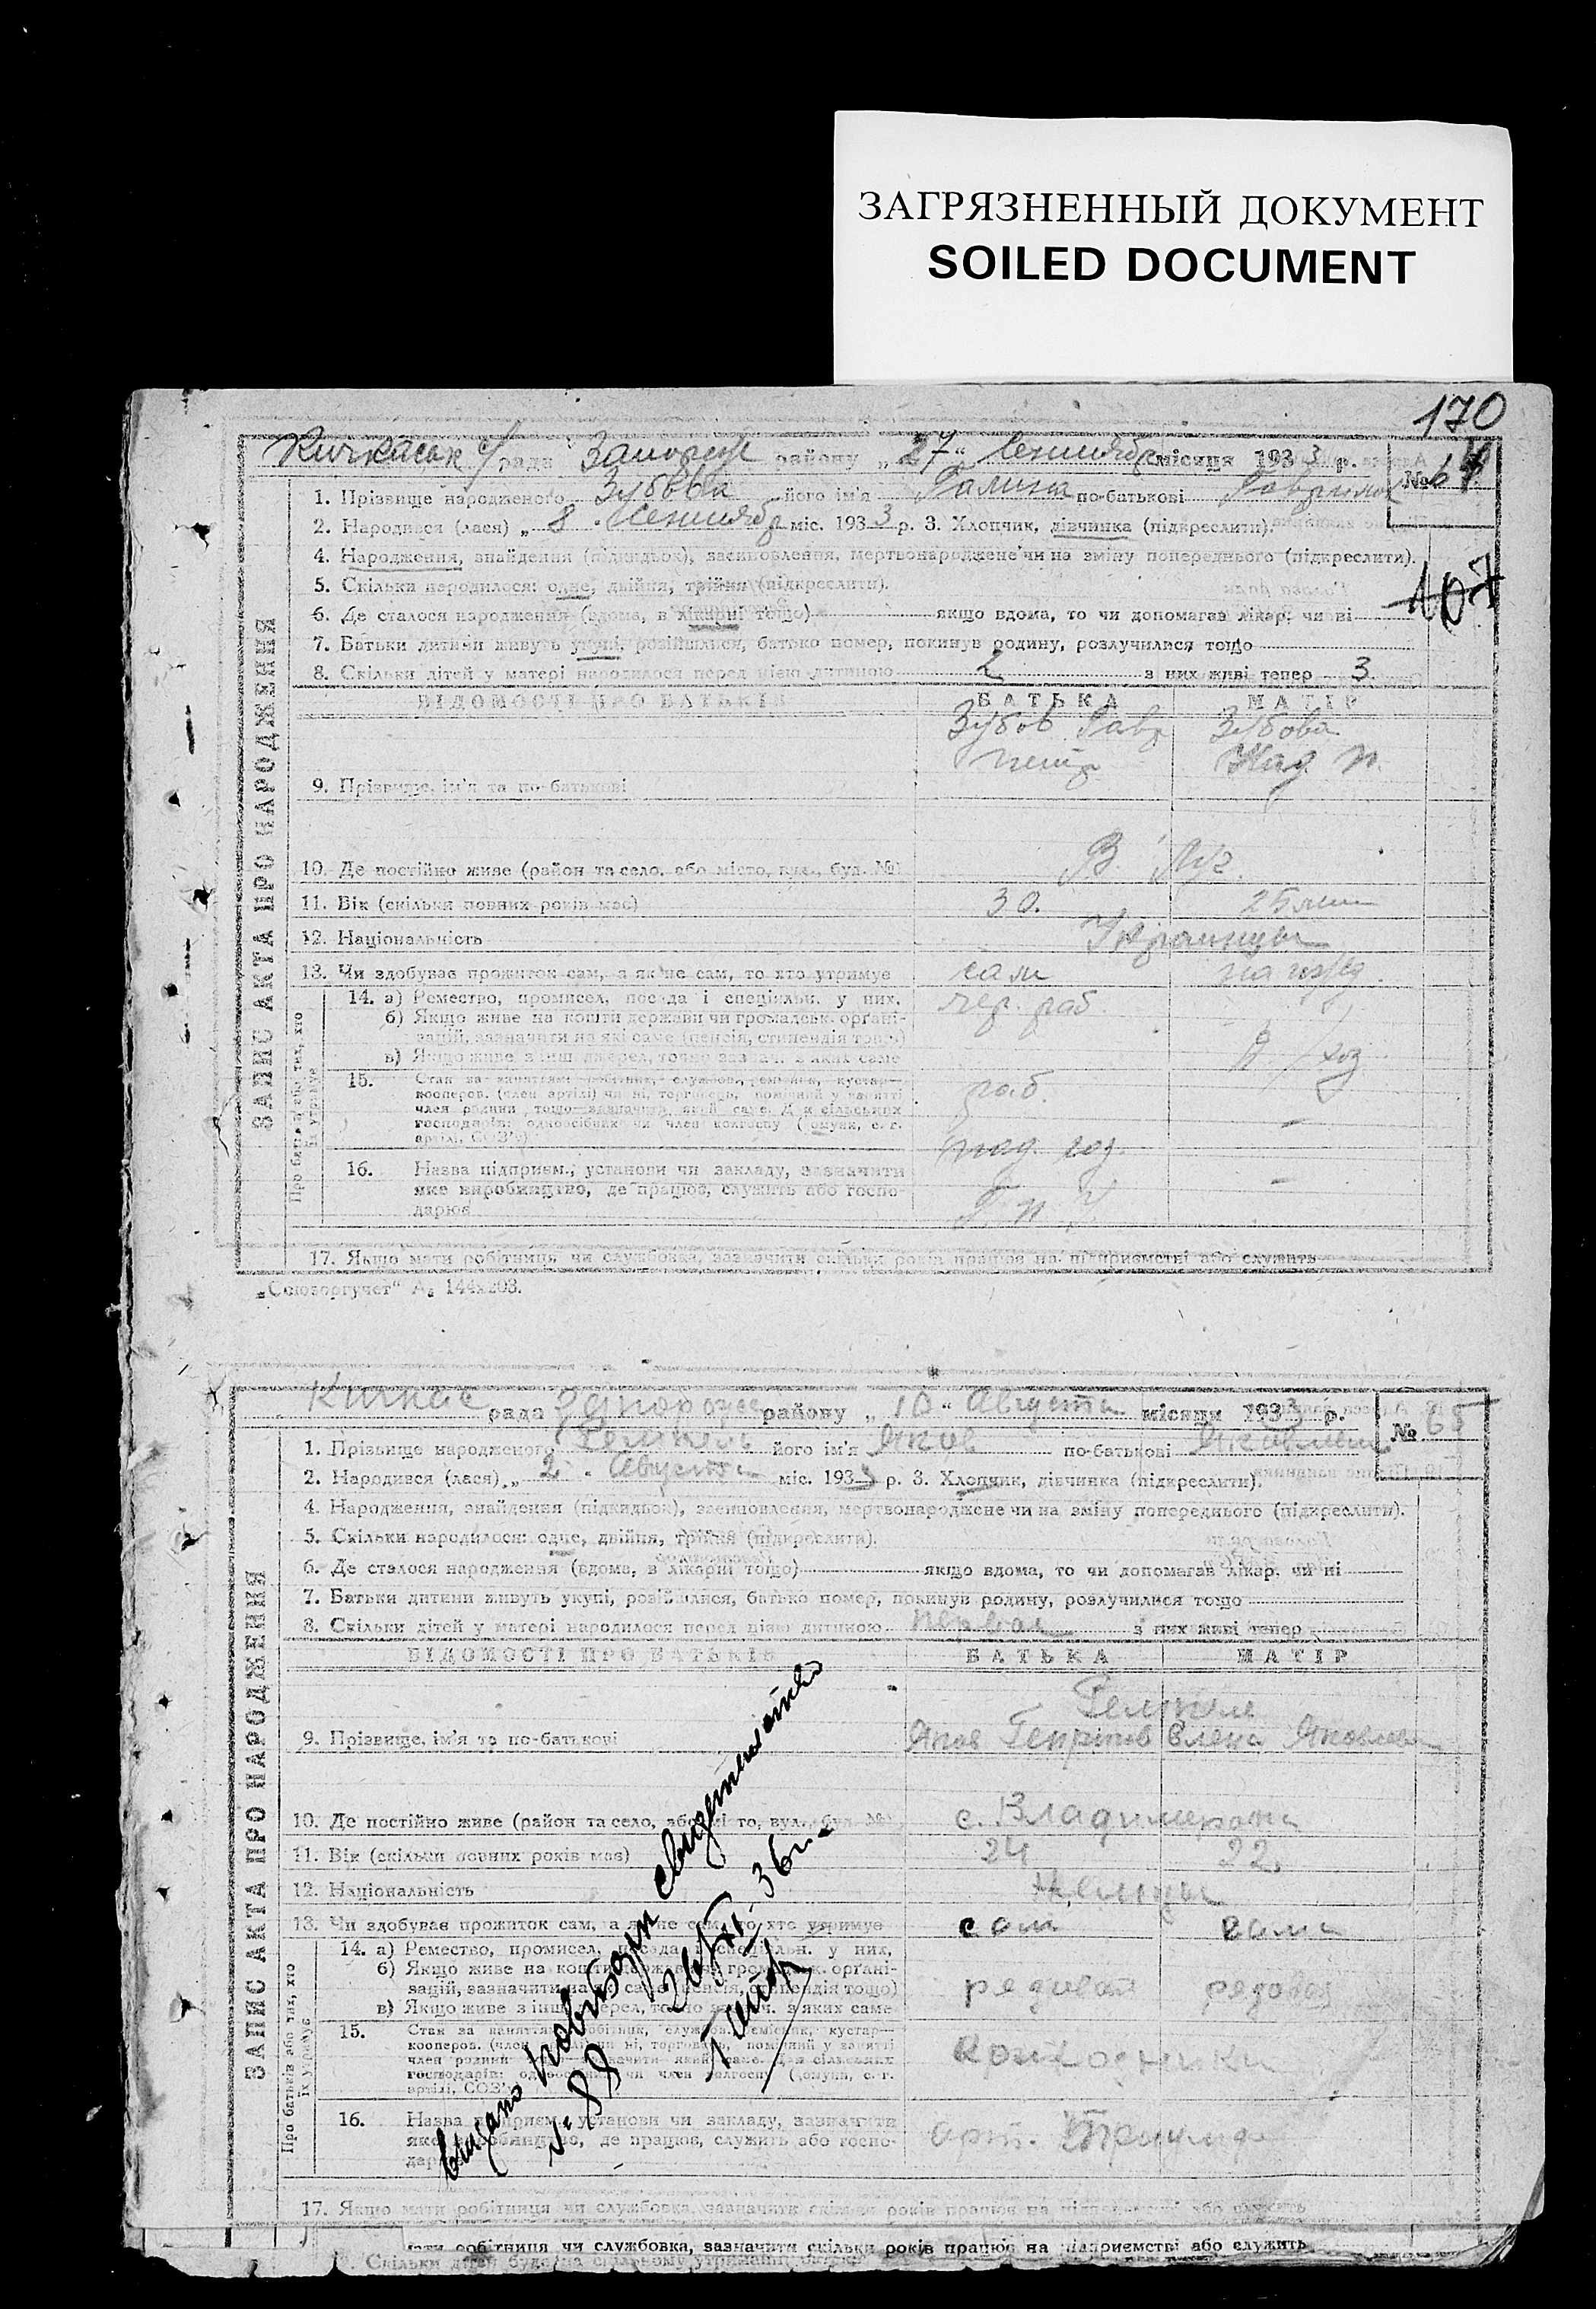 ЗАГРЯЗНЕННЫЙ ДОКУМЕНТ
SOILED DOCUMENT
170
Кичкаськ с/рада Запорізьк району „27“ Сентября місяця 1933 р.
№ 64
1. Прізвище народженого Зубова його ім'я Галина по-батькові Гаврилов
2. Народився (лася) „8“ Сентябр міс. 1933 р. 3. Хлопчик, дівчинка (підкреслити).
4. Народження, знайдення (підкидьок), засиновлення, мертвонароджене чи на зміну попереднього (підкреслити).
5. Скільки народилося: одне, двійня, трійня (підкреслити).
107
6. Де сталося народження (вдома, в лікарні тощо) якщо вдома, то чи допомагав лікар. чи ні
7. Батьки дитини живуть укупі, розійшлися, батько помер, покинув родину, розлучилися тощо
8. Скільки дітей у матері народилося перед цією дитиною 2 з них живі тепер 3
ВІДОМОСТІ ПРО БАТЬКІВ БАТЬКА МАТІР
Зубов Гавр Зубова
Петр Над. П.
9. Прізвище, ім'я та по-батькові
10. Де постійно живе (район та село, або місто, вул., буд. №) В. Луг
11. Вік (скільки повних років має) 30. 25 лет
12. Національність Украинцы
13. Чи здобуває прожиток сам, а як не сам, то хто утримує сам на ижд.
14. а) Ремество, промисел, посада і спеціяльн. у них. чер. раб.
б) Якщо живе на кошти держави чи громадськ. органі-
зацій, зазначити на які саме (пенсія, стипендія тощо)
в) Якщо живе з інш. джерел, точно зазнач. з яких саме
Д/хоз
15. Стан за заняттям: робітник, службов., ремісник, кустар—
кооперов. (член артілі) чи ні, торговець, помічний у занятті
член родини тощо—зазначити який саме. Для сільських
господарів: одноосібник чи член колгоспу (комуни, с.-г.
артілі, СОЗ'у)
раб.
16. Назва підприєм., установи чи закладу, зазначити
яке виробництво, де працює, служить або госпо-
дарює
под. хоз.
17. Якщо мати робітниця чи службовка, зазначити скільки років працює на підприємстві або служить
ЗАПИС АКТА ПРО НАРОДЖЕННЯ
Про батьків або тих, хто їх утримує
„Союзоргучет“ А₆ 144х203.
Кичкас рада Запорожск району „10“ Августа місяця 1933 р.
№ 65
1. Прізвище народженого його ім'я Яков по-батькові Яковлевич
2. Народився (лася) „2“ Августа міс. 1933 р. 3. Хлопчик, дівчинка (підкреслити).
4. Народження, знайдення (підкидьок), засиновлення, мертвонароджене чи на зміну попереднього (підкреслити).
5. Скільки народилося: одне, двійня, трійня (підкреслити).
6. Де сталося народження (вдома, в лікарні тощо) якщо вдома, то чи допомагав лікар. чи ні
7. Батьки дитини живуть укупі, розійшлися, батько помер, покинув родину, розлучилися тощо
8. Скільки дітей у матері народилося перед цією дитиною первая з них живі тепер
ВІДОМОСТІ ПРО БАТЬКІВ БАТЬКА МАТІР
9. Прізвище, ім'я та по-батькові Яков Генрихов Елена Яковлевн
10. Де постійно живе (район та село, або місто, вул., буд. №) с. Владимировка
11. Вік (скільки повних років має) 24 22
12. Національність Немцы
13. Чи здобуває прожиток сам, а як не сам, то хто утримує сам сама
14. а) Ремество, промисел, посада і спеціяльн. у них,
б) Якщо живе на кошти держави чи громадськ. органі-
зацій, зазначити на які саме (пенсія, стипендія тощо)
в) Якщо живе з інш. джерел, точно зазнач. з яких саме
рядовой рядовая
15. Стан за заняттям: робітник, службов., ремісник, кустар—
кооперов. (член артілі) чи ні, торговець, помічний у занятті
член родини тощо—зазначити який саме. Для сільських
господарів: одноосібник чи член колгоспу (комуни, с.-г.
артілі, СОЗ'у)
колхозники
16. Назва підприєм., установи чи закладу, зазначити
яке виробництво, де працює, служить або госпо-
дарює
арт.
17. Якщо мати робітниця чи службовка, зазначити скільки років працює на підприємстві або служить
ЗАПИС АКТА ПРО НАРОДЖЕННЯ
Про батьків або тих, хто їх утримує
Выдано повторн свидетельство
№ 88 26/XI-36 г.
мати робітниця чи службовка, зазначити скільки років працює на підприємстві або служить
Скільки дітей буде на спільному утриманні